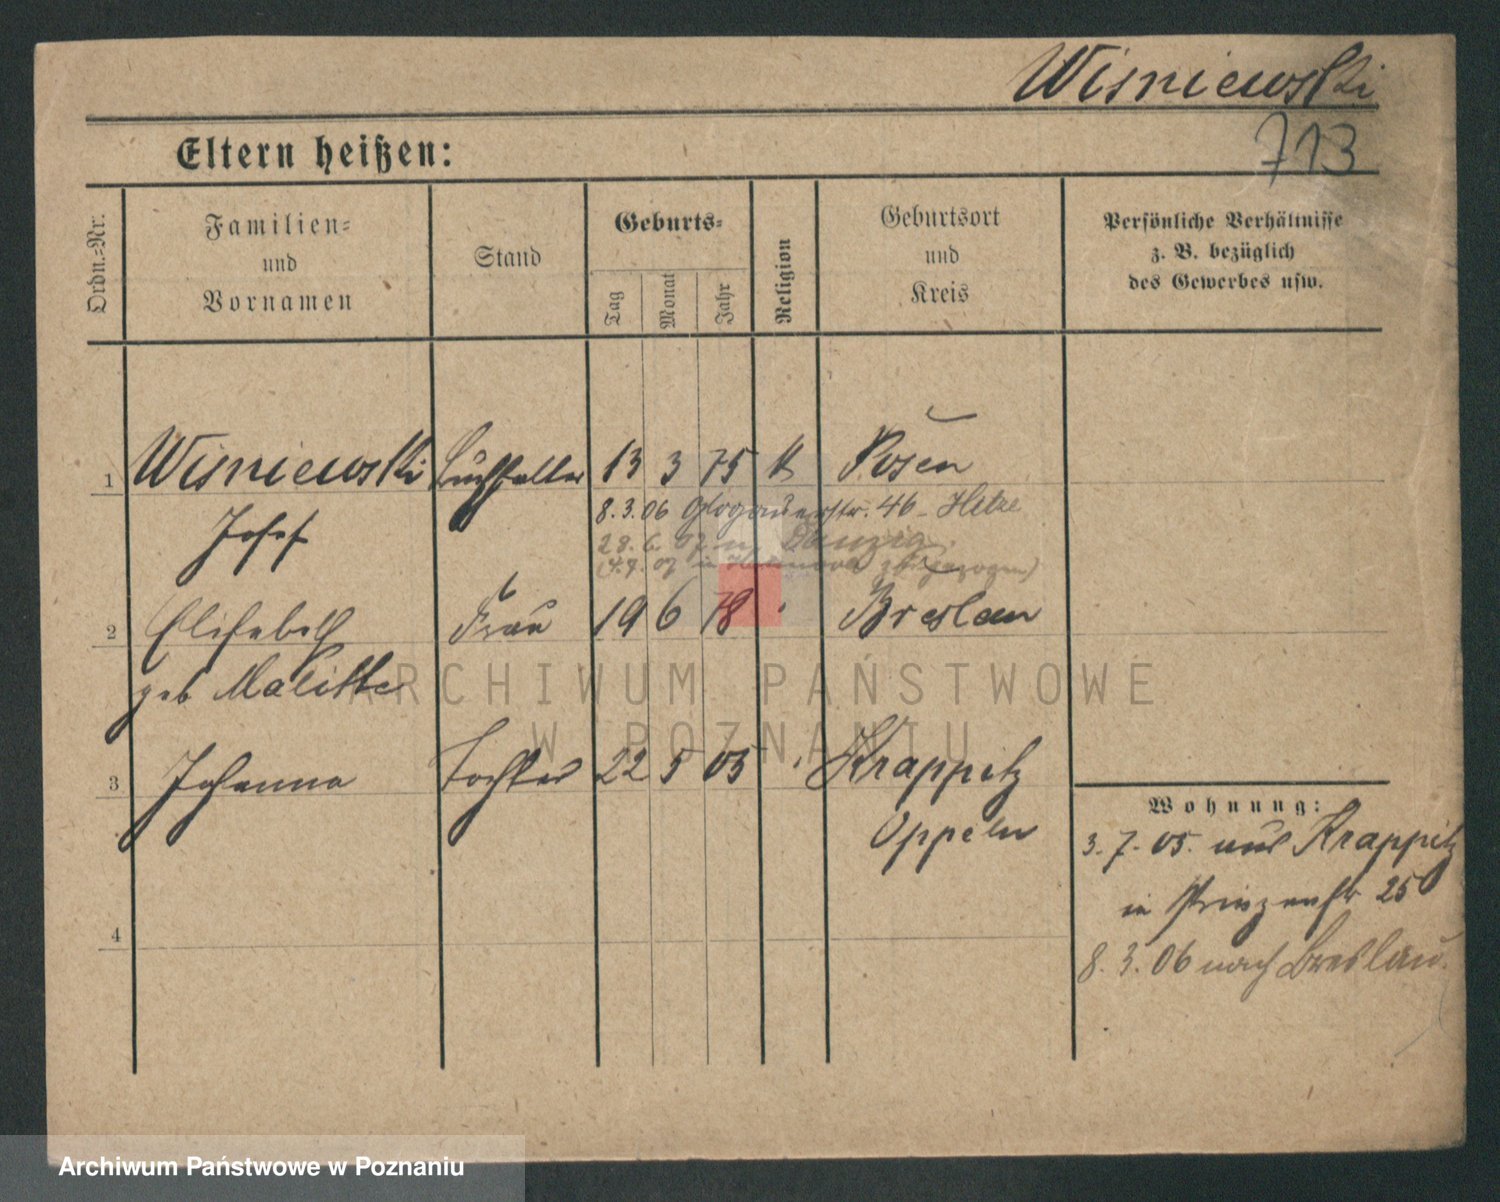 Wisniewski
713
Eltern heißen:
Ordn.=Nr.
Familien=
und
Vornamen
Stand
Geburts=
Tag
Monat
Jahr
Religion
Geburtsort
und
Kreis
Persönliche Verhältnisse
z. B. bezüglich
des Gewerbes usw.
1 Wisniewski Buchhalter 13 3 75 k Posen
8.3.06 Glogauerstr. 46
Josef
28. 6. 07 n. Danzig.
2 Elisabeth Frau 19 6 78 " Breslau
geb Malitke
3 Johanna Tochter 22 5 05 " Krappitz
Oppeln
4
Wohnung:
3. 7. 05. aus Krappitz
in Prinzenstr 25
8. 3. 06 nach Breslau.
ARCHIWUM PAŃSTWOWE
W POZNANIU
Archiwum Państwowe w Poznaniu